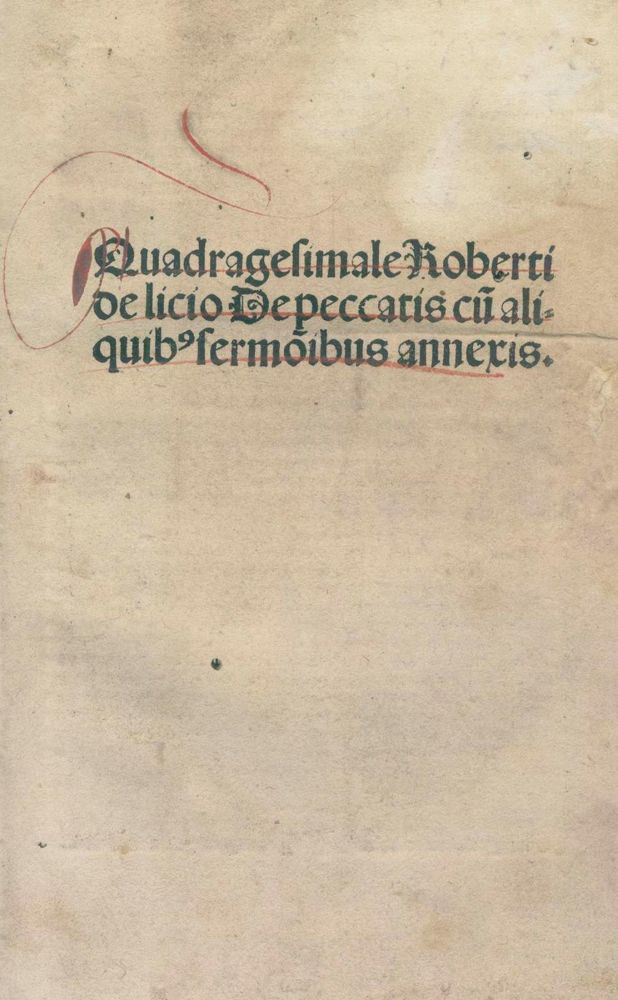 Quadrageſimale Roberti
de licio De peccatis cū ali⸗
quibꝰ ſermōibus annexis.